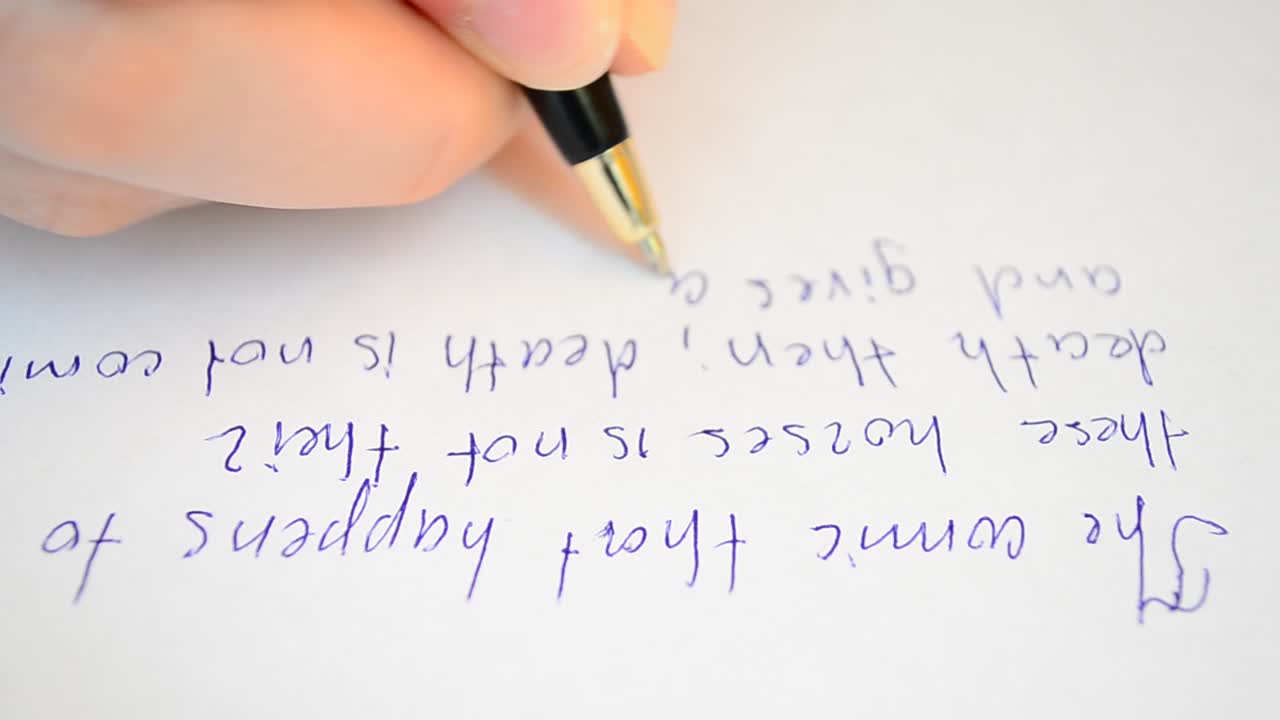 The comic that happens to
these horses is not their
death then, death is not comi
and gives a